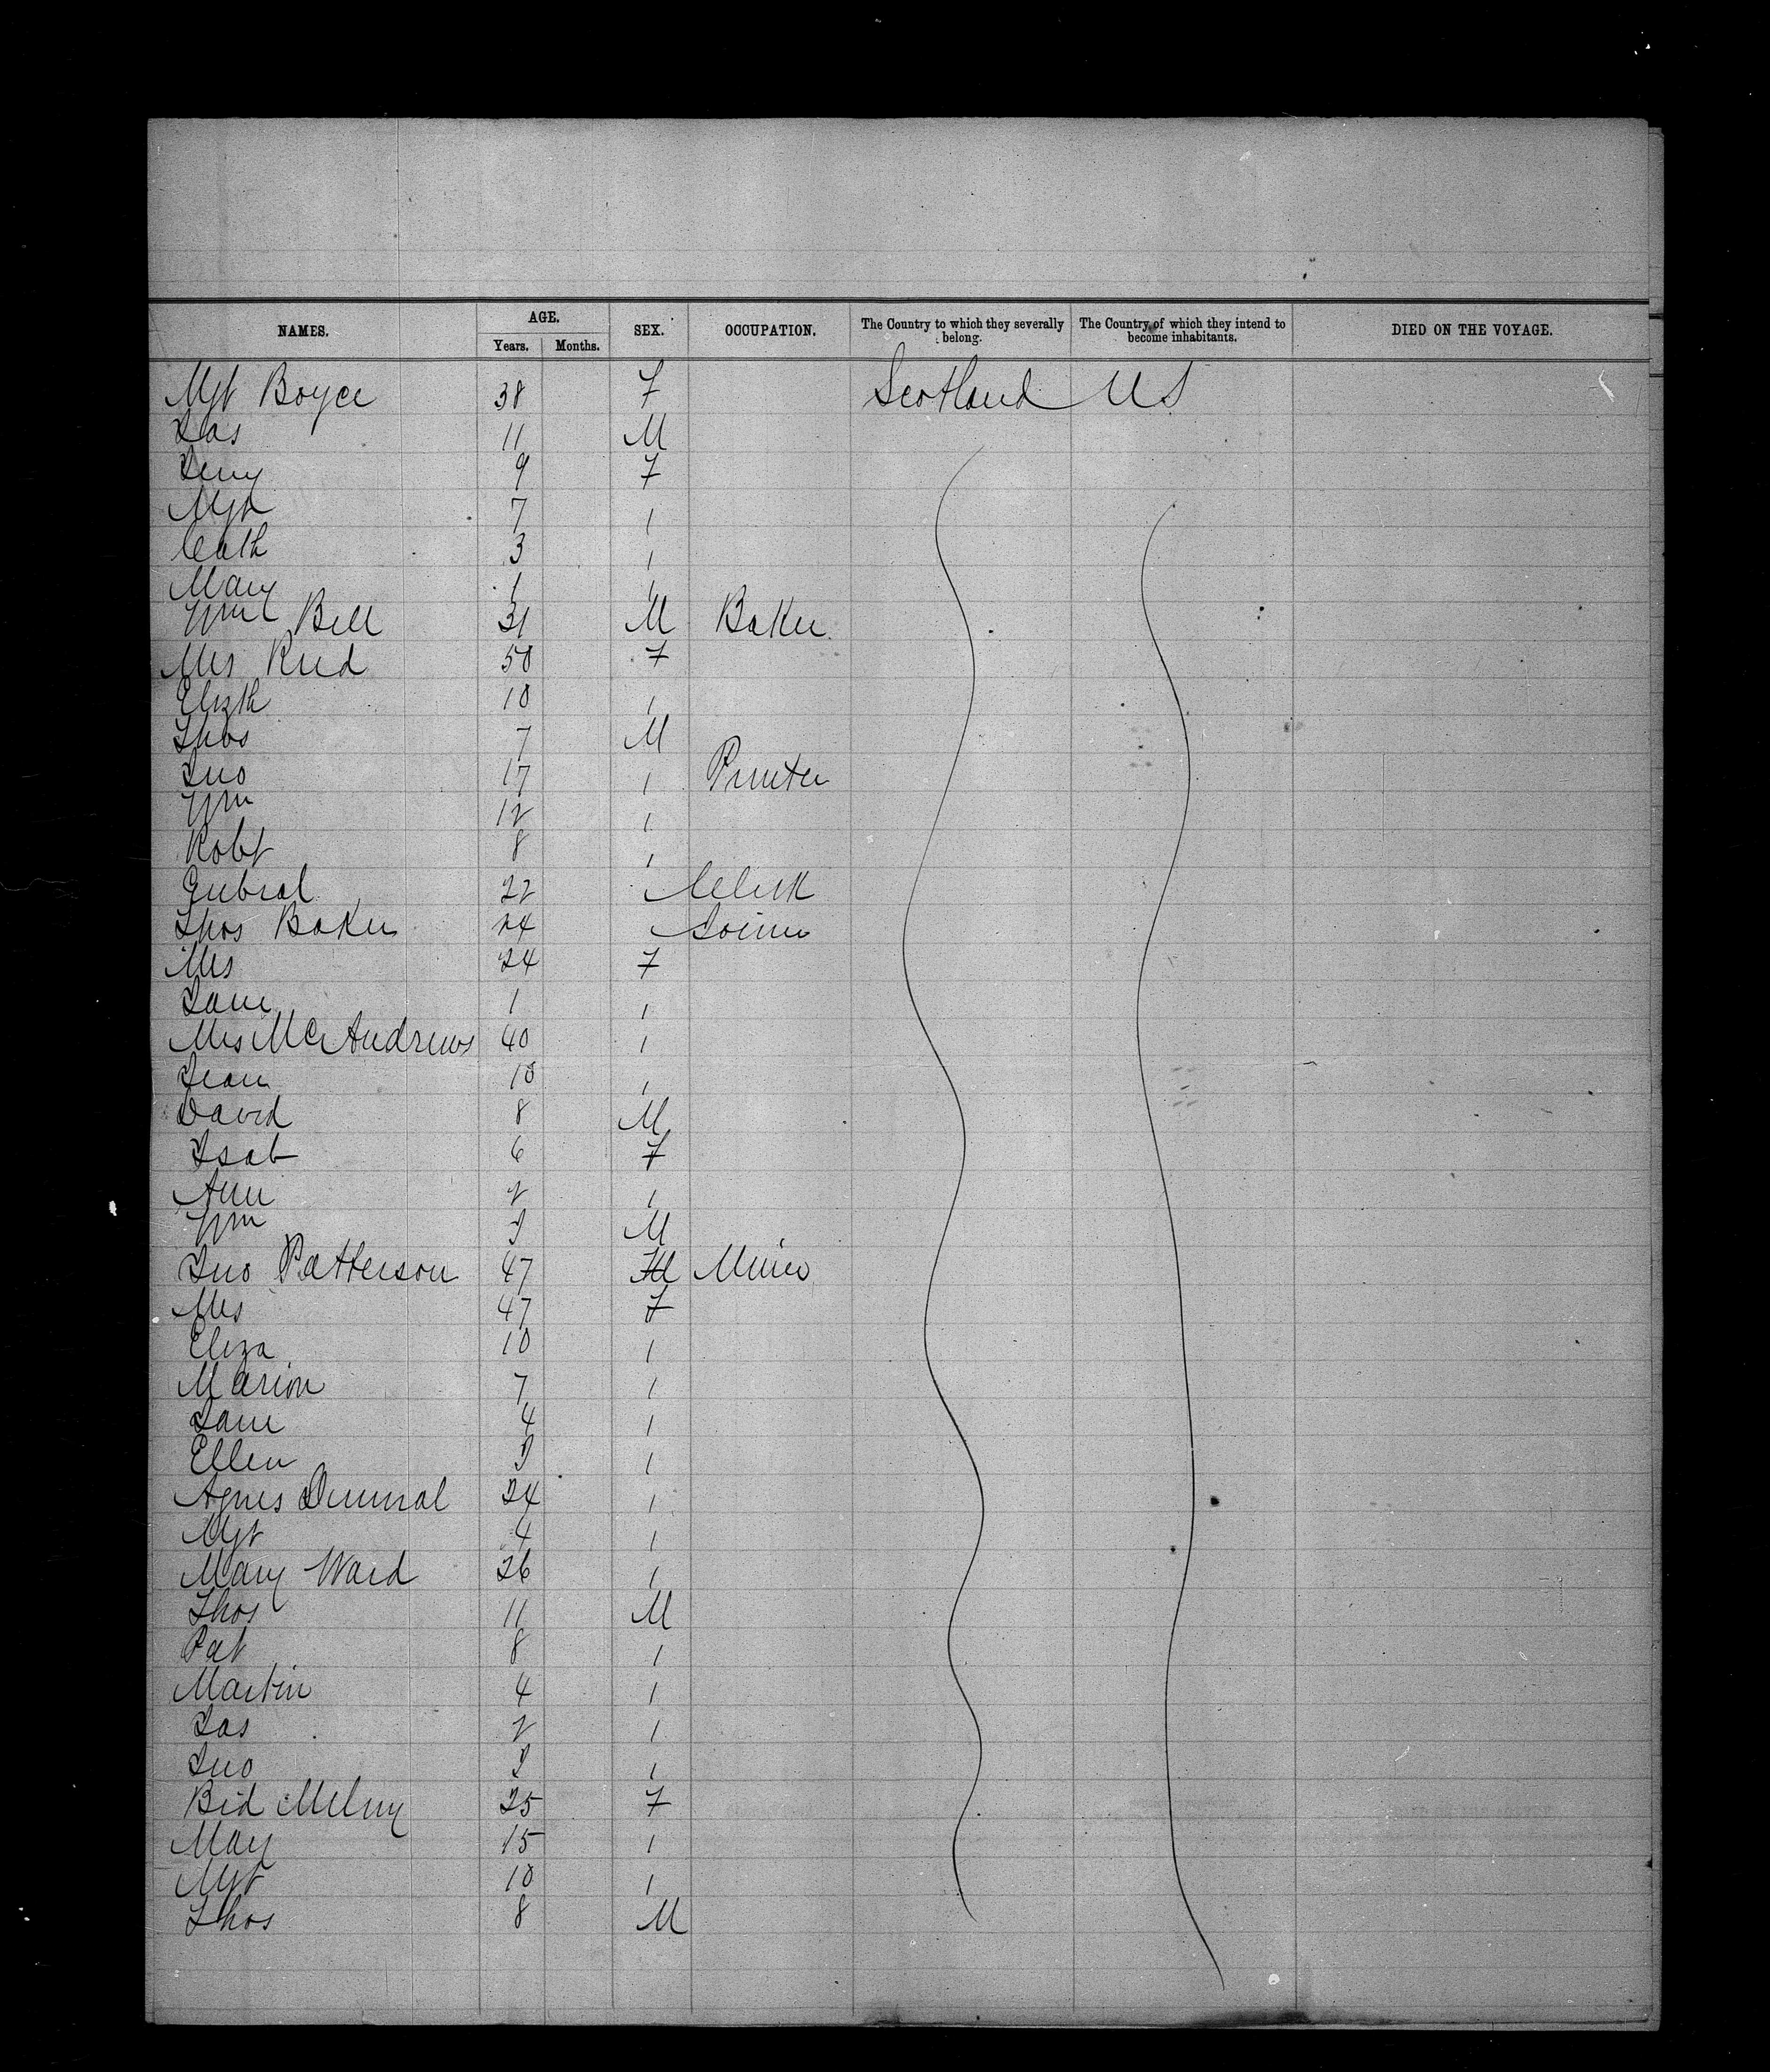 NAMES. AGE. SEX. OCCUPATION. The Country to which they severally belong. The Country of which they intend to become inhabitants. DIED ON THE VOYAGE.
Years. Months.
Mgt Boyce 38 F Scotland US
Jas 11 M
Jeny 9 F
Mgt 7 "
Cath 3 "
Mary 1 "
Wm Bell 31 M Baker
Mrs Reid 50 F
Elizth 10 "
Thos 7 M
Jno 17 " Printer
Wm 12 "
Robt 8 "
22 " Clerk
Thos Baker 24 "
Mrs 24 F
Jane 1 "
Mrs McAndrews 40 "
Jean 10 "
David 8 M
Isab 6 F
Ann 2 "
Wm M
Jno Patterson 47 M Miner
Mrs 47 F
Eliza 10 "
Marion 7 "
Jane 4 "
Ellen "
Agnes 24 "
Mgt 4 "
Mary Ward 26 "
Thos 11 M
Pat 8 "
Martin 4 "
Jas 2 "
Jno "
Bid 25 F
May 15 "
Mgt 10 "
Thos 8 M